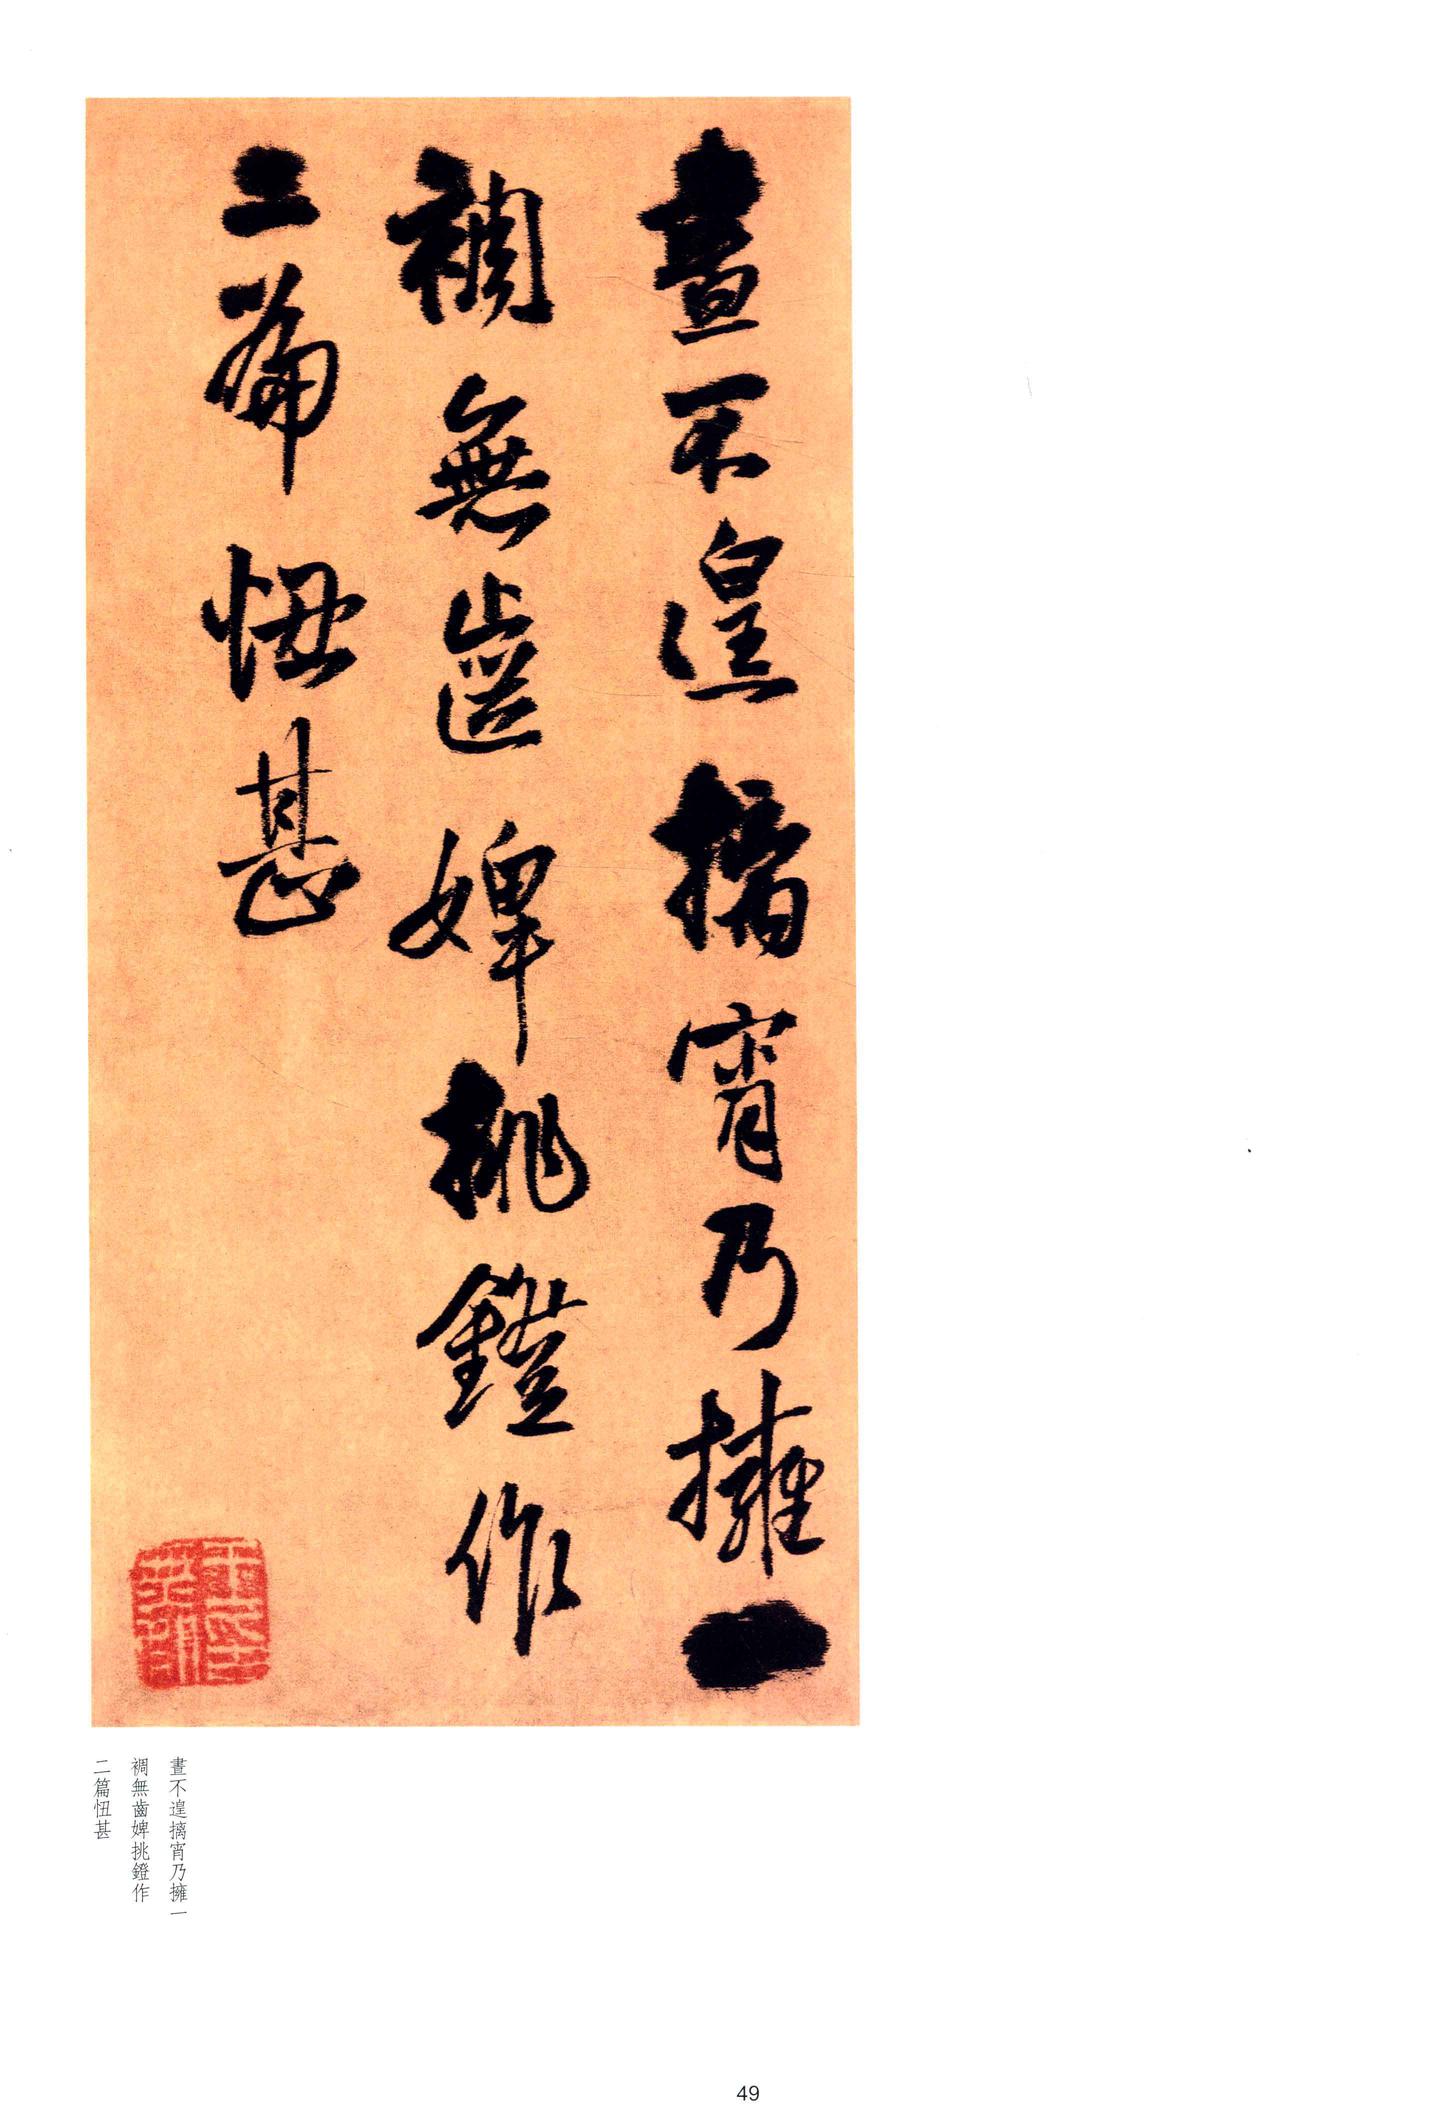 晝不遑摛宵乃擁一
裯無齒婢挑鐙作
二篇忸甚
晝不遑摛宵乃擁一
裯無齒婢挑鐙作
二篇忸甚
49